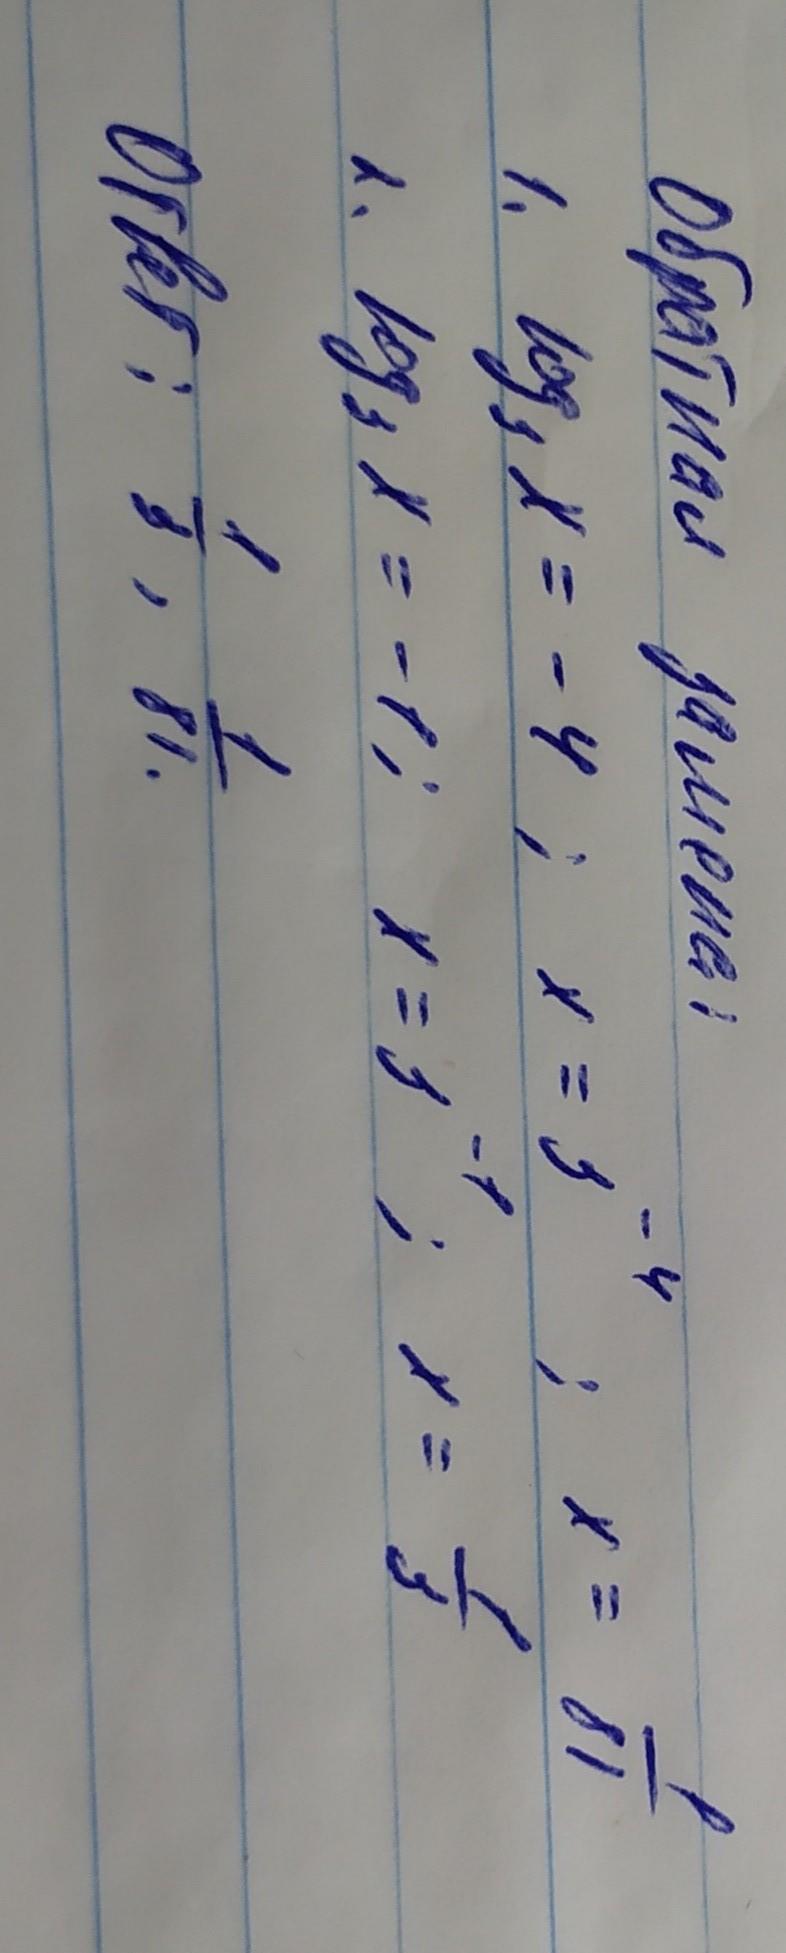 Обратная замена:
1. log₃ x = -4 ; x = 3⁻⁴ ; x = 1/81
2. log₃ x = -1 ; x = 3⁻¹ ; x = 1/3
Ответ: 1/3, 1/81.